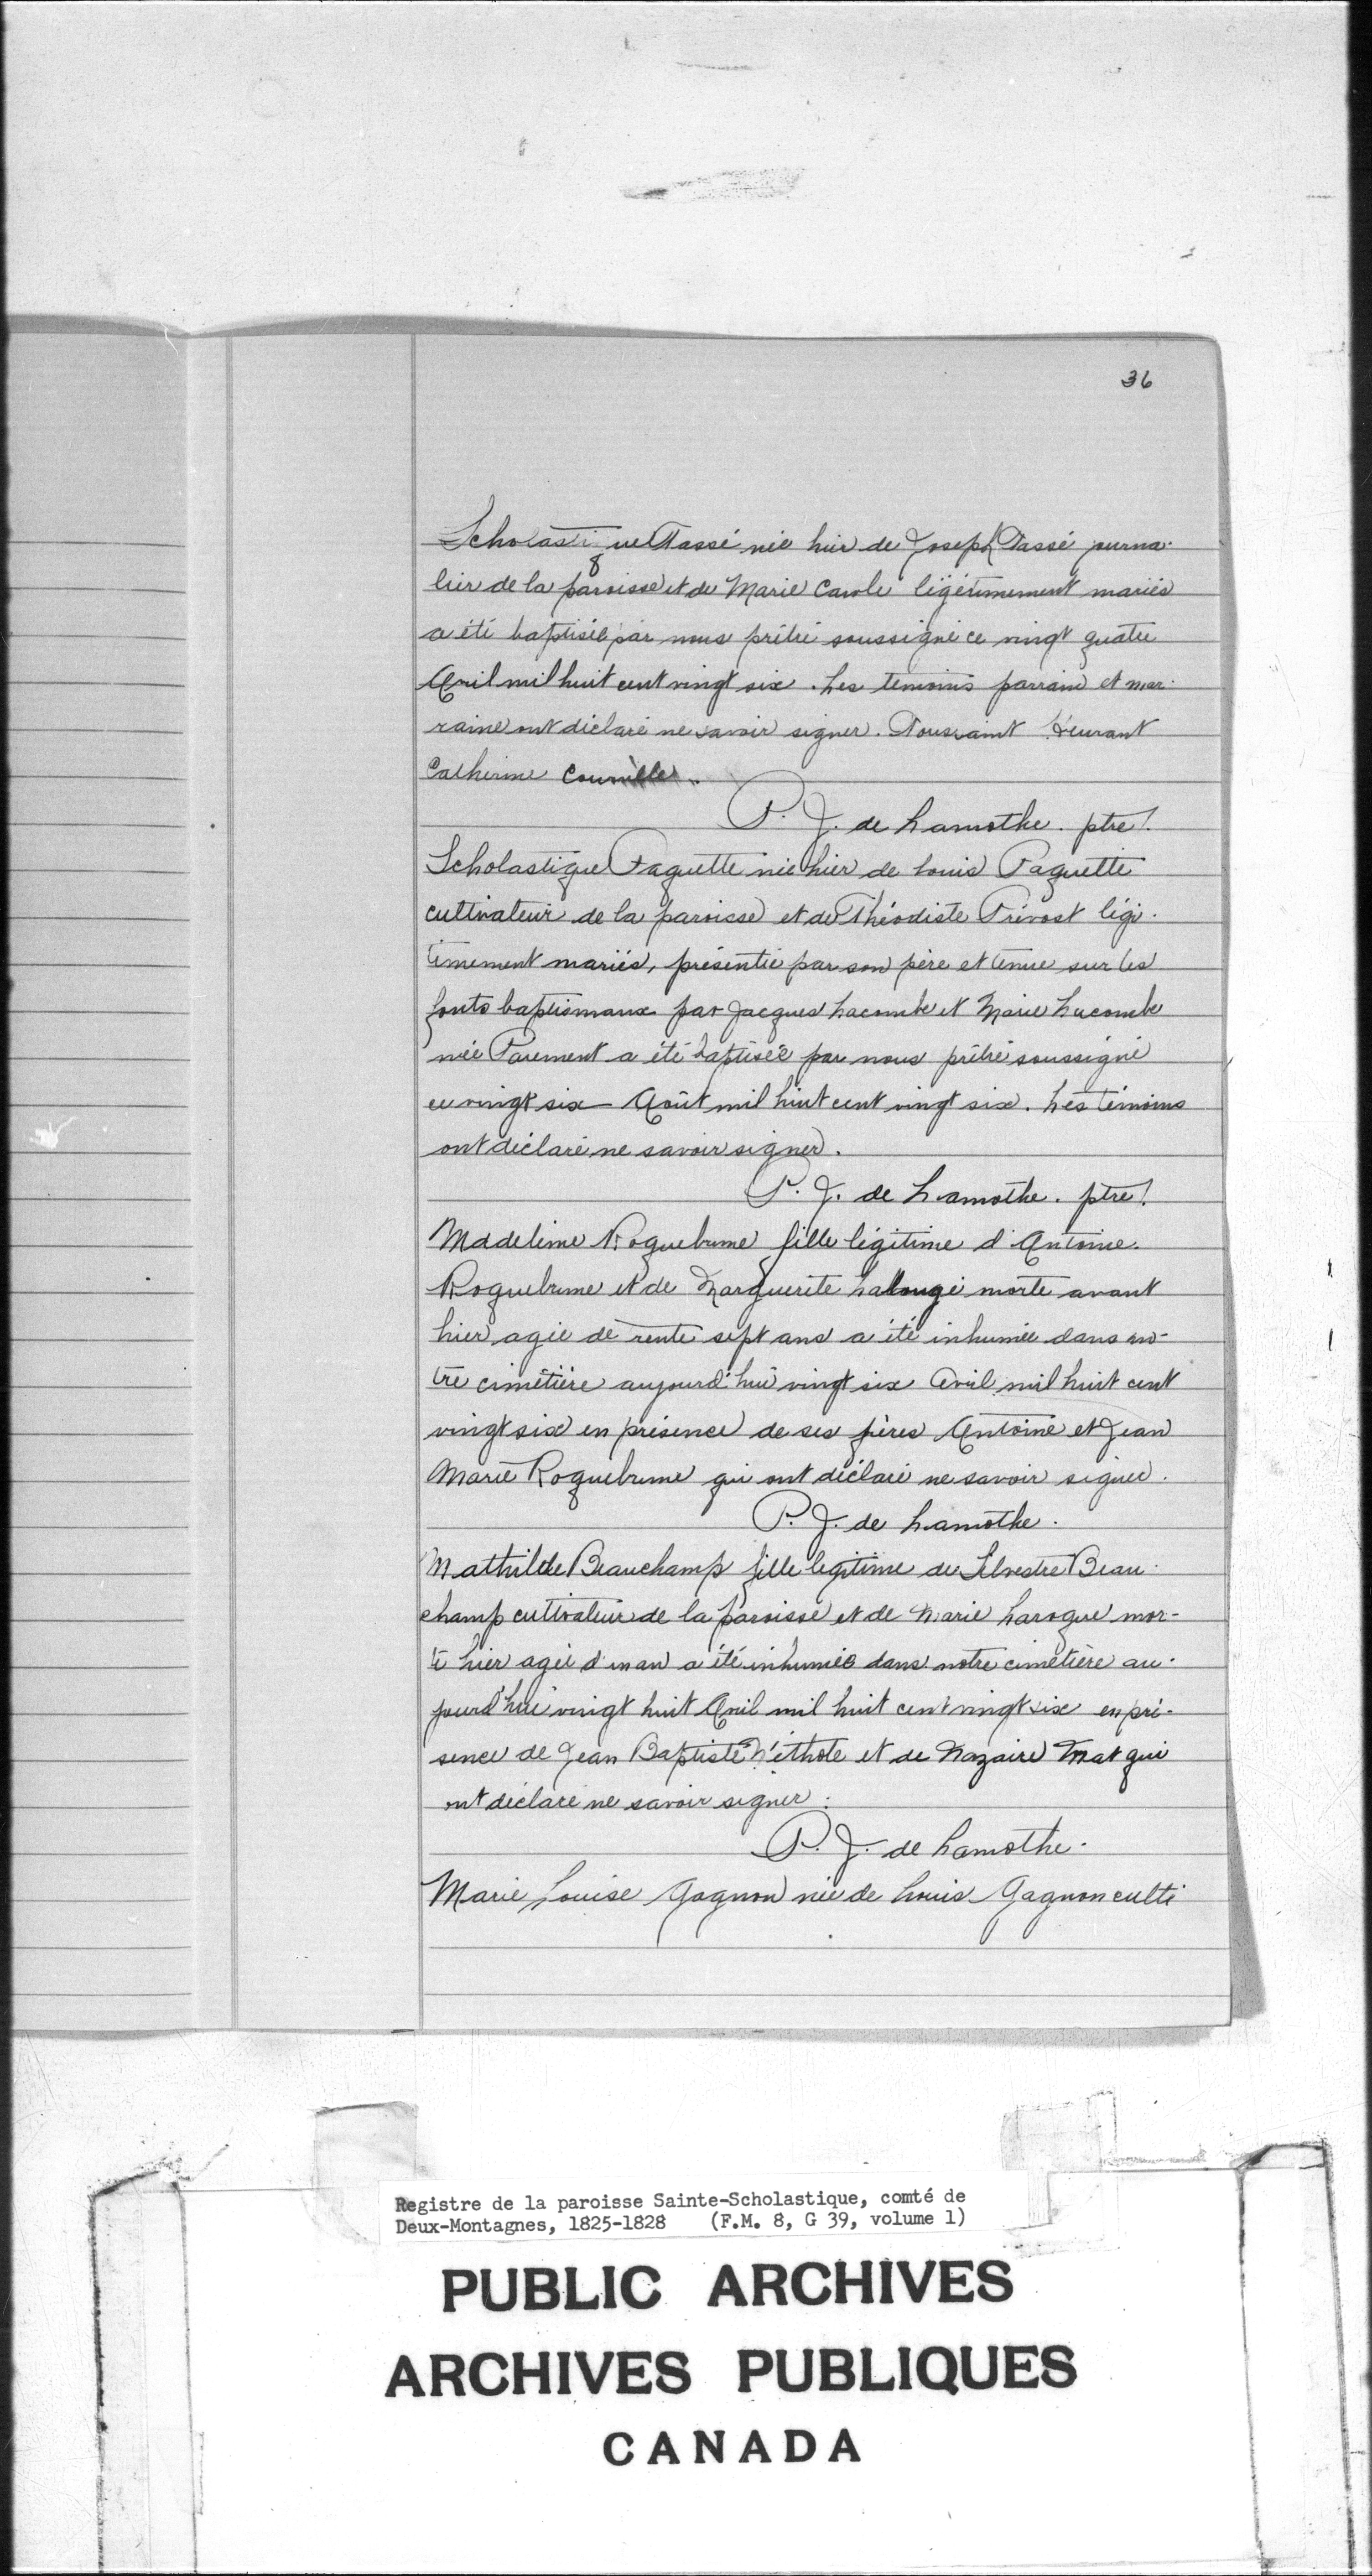 36
Scholastique Tassé née hier de Joseph Tassé journa-
lier de la paroisse et de Marie Carole légitimement mariés
a été baptisée par nous prêtre soussigné ce vingt quatre
Avril mil huit cent vingt six. Les témoins parrain et mar-
raine ont déclaré ne savoir signer. Toussaint
Catherine Courville.
P. J. de Lamothe. ptre.
Scholastique Paquette née hier de Louis Paquette
cultivateur de la paroisse et de Théodiste Prévost légi-
timement mariés, présentée par son père et tenue sur les
fonts baptismaux par Jacques Lacombe et Marie Lacombe
née Parement a été baptisée par nous prêtre soussigné
ce vingt six Août mil huit cent vingt six. Les témoins
ont déclaré ne savoir signer.
P. J. de Lamothe. ptre.
Madeleine Roquebrune fille légitime d'Antoine
Roquebrune et de Marguerite Lalongé morte avant
hier agée de rente sept ans a été inhumée dans no-
tre cimetière aujourd'hui vingt six Avril mil huit cent
vingt six en présence de ses frères Antoine et Jean
Marie Roquebrune qui ont déclaré ne savoir signer.
P. J. de Lamothe.
Mathilde Beauchamp fille legitime de Silvestre Beau-
champ cultivateur de la paroisse et de Marie Laroque mor-
te hier agée d'un an a été inhumée dans notre cimetière au-
jourd'hui vingt huit Avril mil huit cent vingt six en pré-
sence de Jean Baptiste et de Nazaire qui
ont déclaré ne savoir signer.
P. J. de Lamothe.
Marie Louise Gagnon née de Louis Gagnon culti
Registre de la paroisse Sainte-Scholastique, comté de
Deux-Montagnes, 1825-1828 (F.M. 8, G 39, volume 1)
PUBLIC ARCHIVES
ARCHIVES PUBLIQUES
CANADA